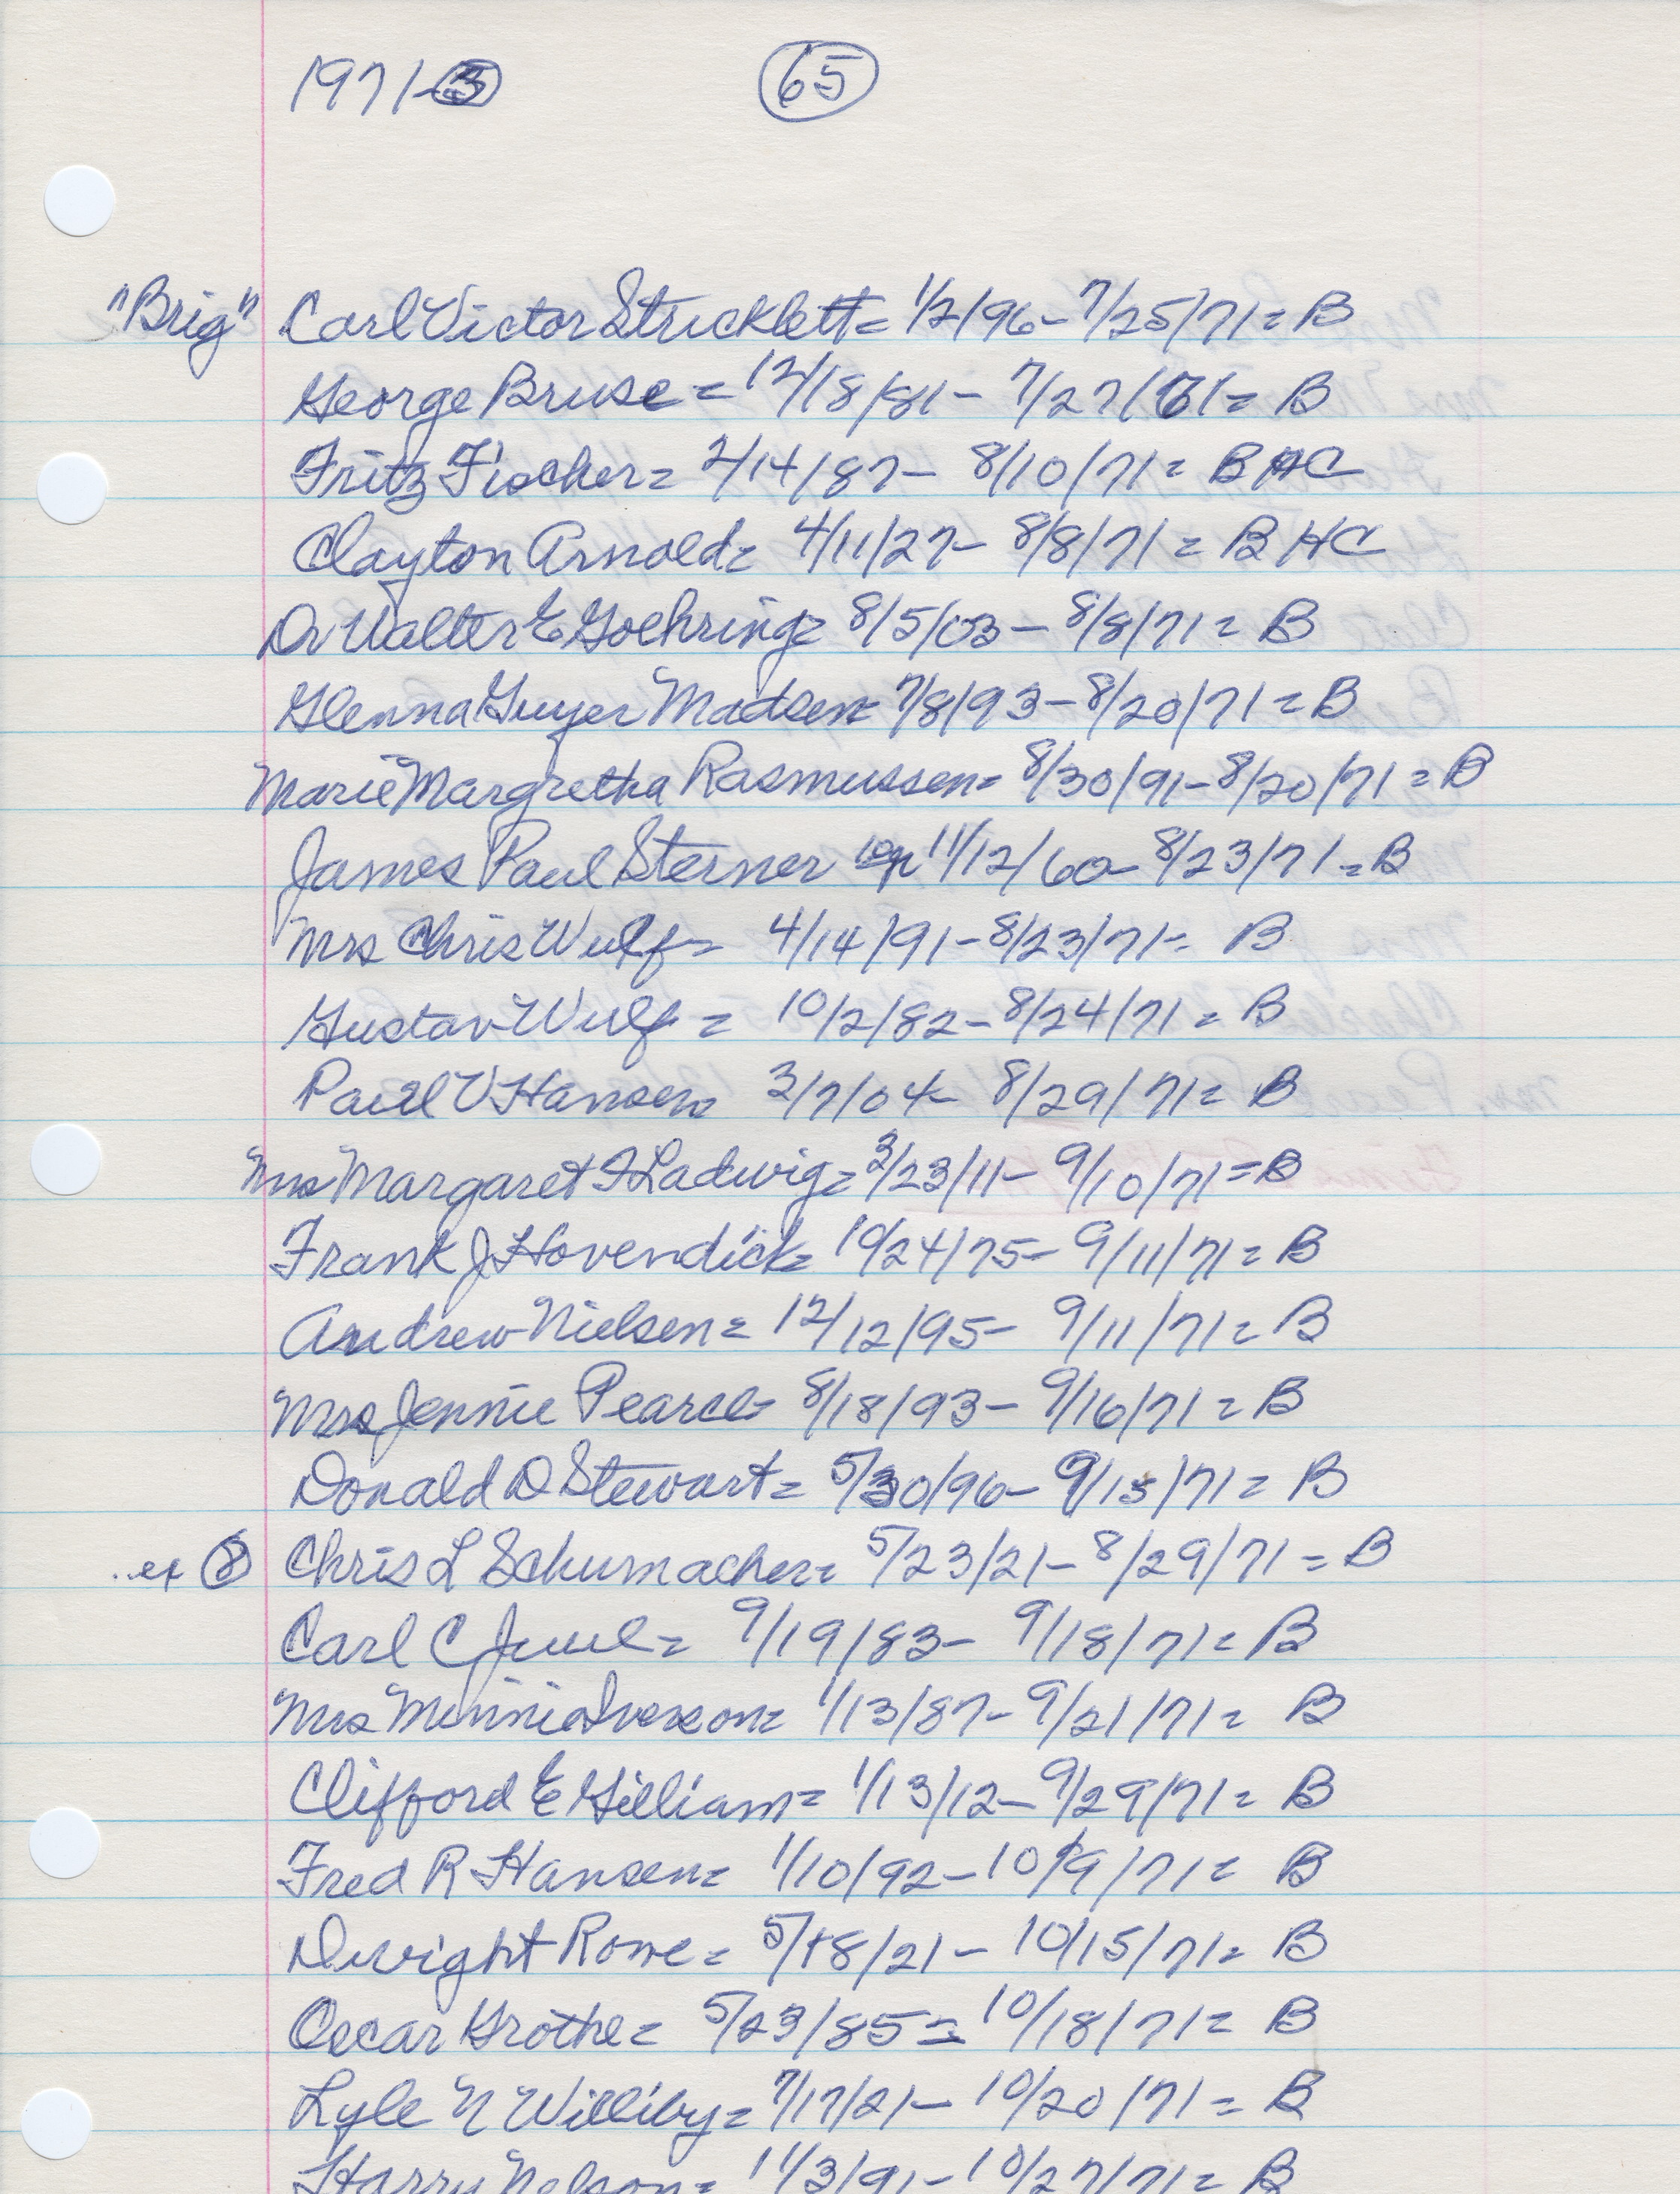 1971-3 65
"Brig" Carl Victor Strucklett = 1/2/96 - 7/25/71 = B
George Bruse = 12/18/81 - 7/27/71 = B
Fritz Fischer = 2/14/87 - 8/10/71 = B HC
Clayton Arnold = 4/11/27 - 8/8/71 = B HC
Dr Walter E Goehring = 8/5/03 - 8/8/71 = B
Glenna Guyer Madsen = 7/8/93 - 8/20/71 = B
Marie Margretha Rasmussen = 8/30/91 - 8/20/71 = B
James Paul Sterner 11/12/60 - 8/23/71 = B
Mrs Chris Wulf = 4/14/91 - 8/23/71 = B
Gustav Wulf = 10/2/82 - 8/24/71 = B
Paul V Hansen 3/7/04 - 8/29/71 = B
Mrs Margaret I Ladwig = 3/23/11 - 9/10/71 = B
Frank J Hovendick = 10/24/75 - 9/11/71 = B
Andrew Nielsen = 12/12/95 - 9/11/71 = B
Mrs Jennie Pearce = 8/18/93 - 9/16/71 = B
Donald D Stewart = 5/30/96 - 9/15/71 = B
ex 8 Chris L Schumacher = 5/23/21 - 8/29/71 = B
Carl C Juul = 9/19/83 - 9/18/71 = B
Mrs Minnie Iverson = 1/13/87 - 9/21/71 = B
Clifford E Gilliam = 1/13/12 - 9/29/71 = B
Fred R Hansen = 1/10/92 - 10/9/71 = B
Dwight Rowe = 5/18/21 - 10/15/71 = B
Oscar Grothe = 5/23/85 = 10/18/71 = B
Lyle N Williby = 7/17/21 - 10/20/71 = B
Harry Nelson = 11/3/91 - 10/27/71 = B